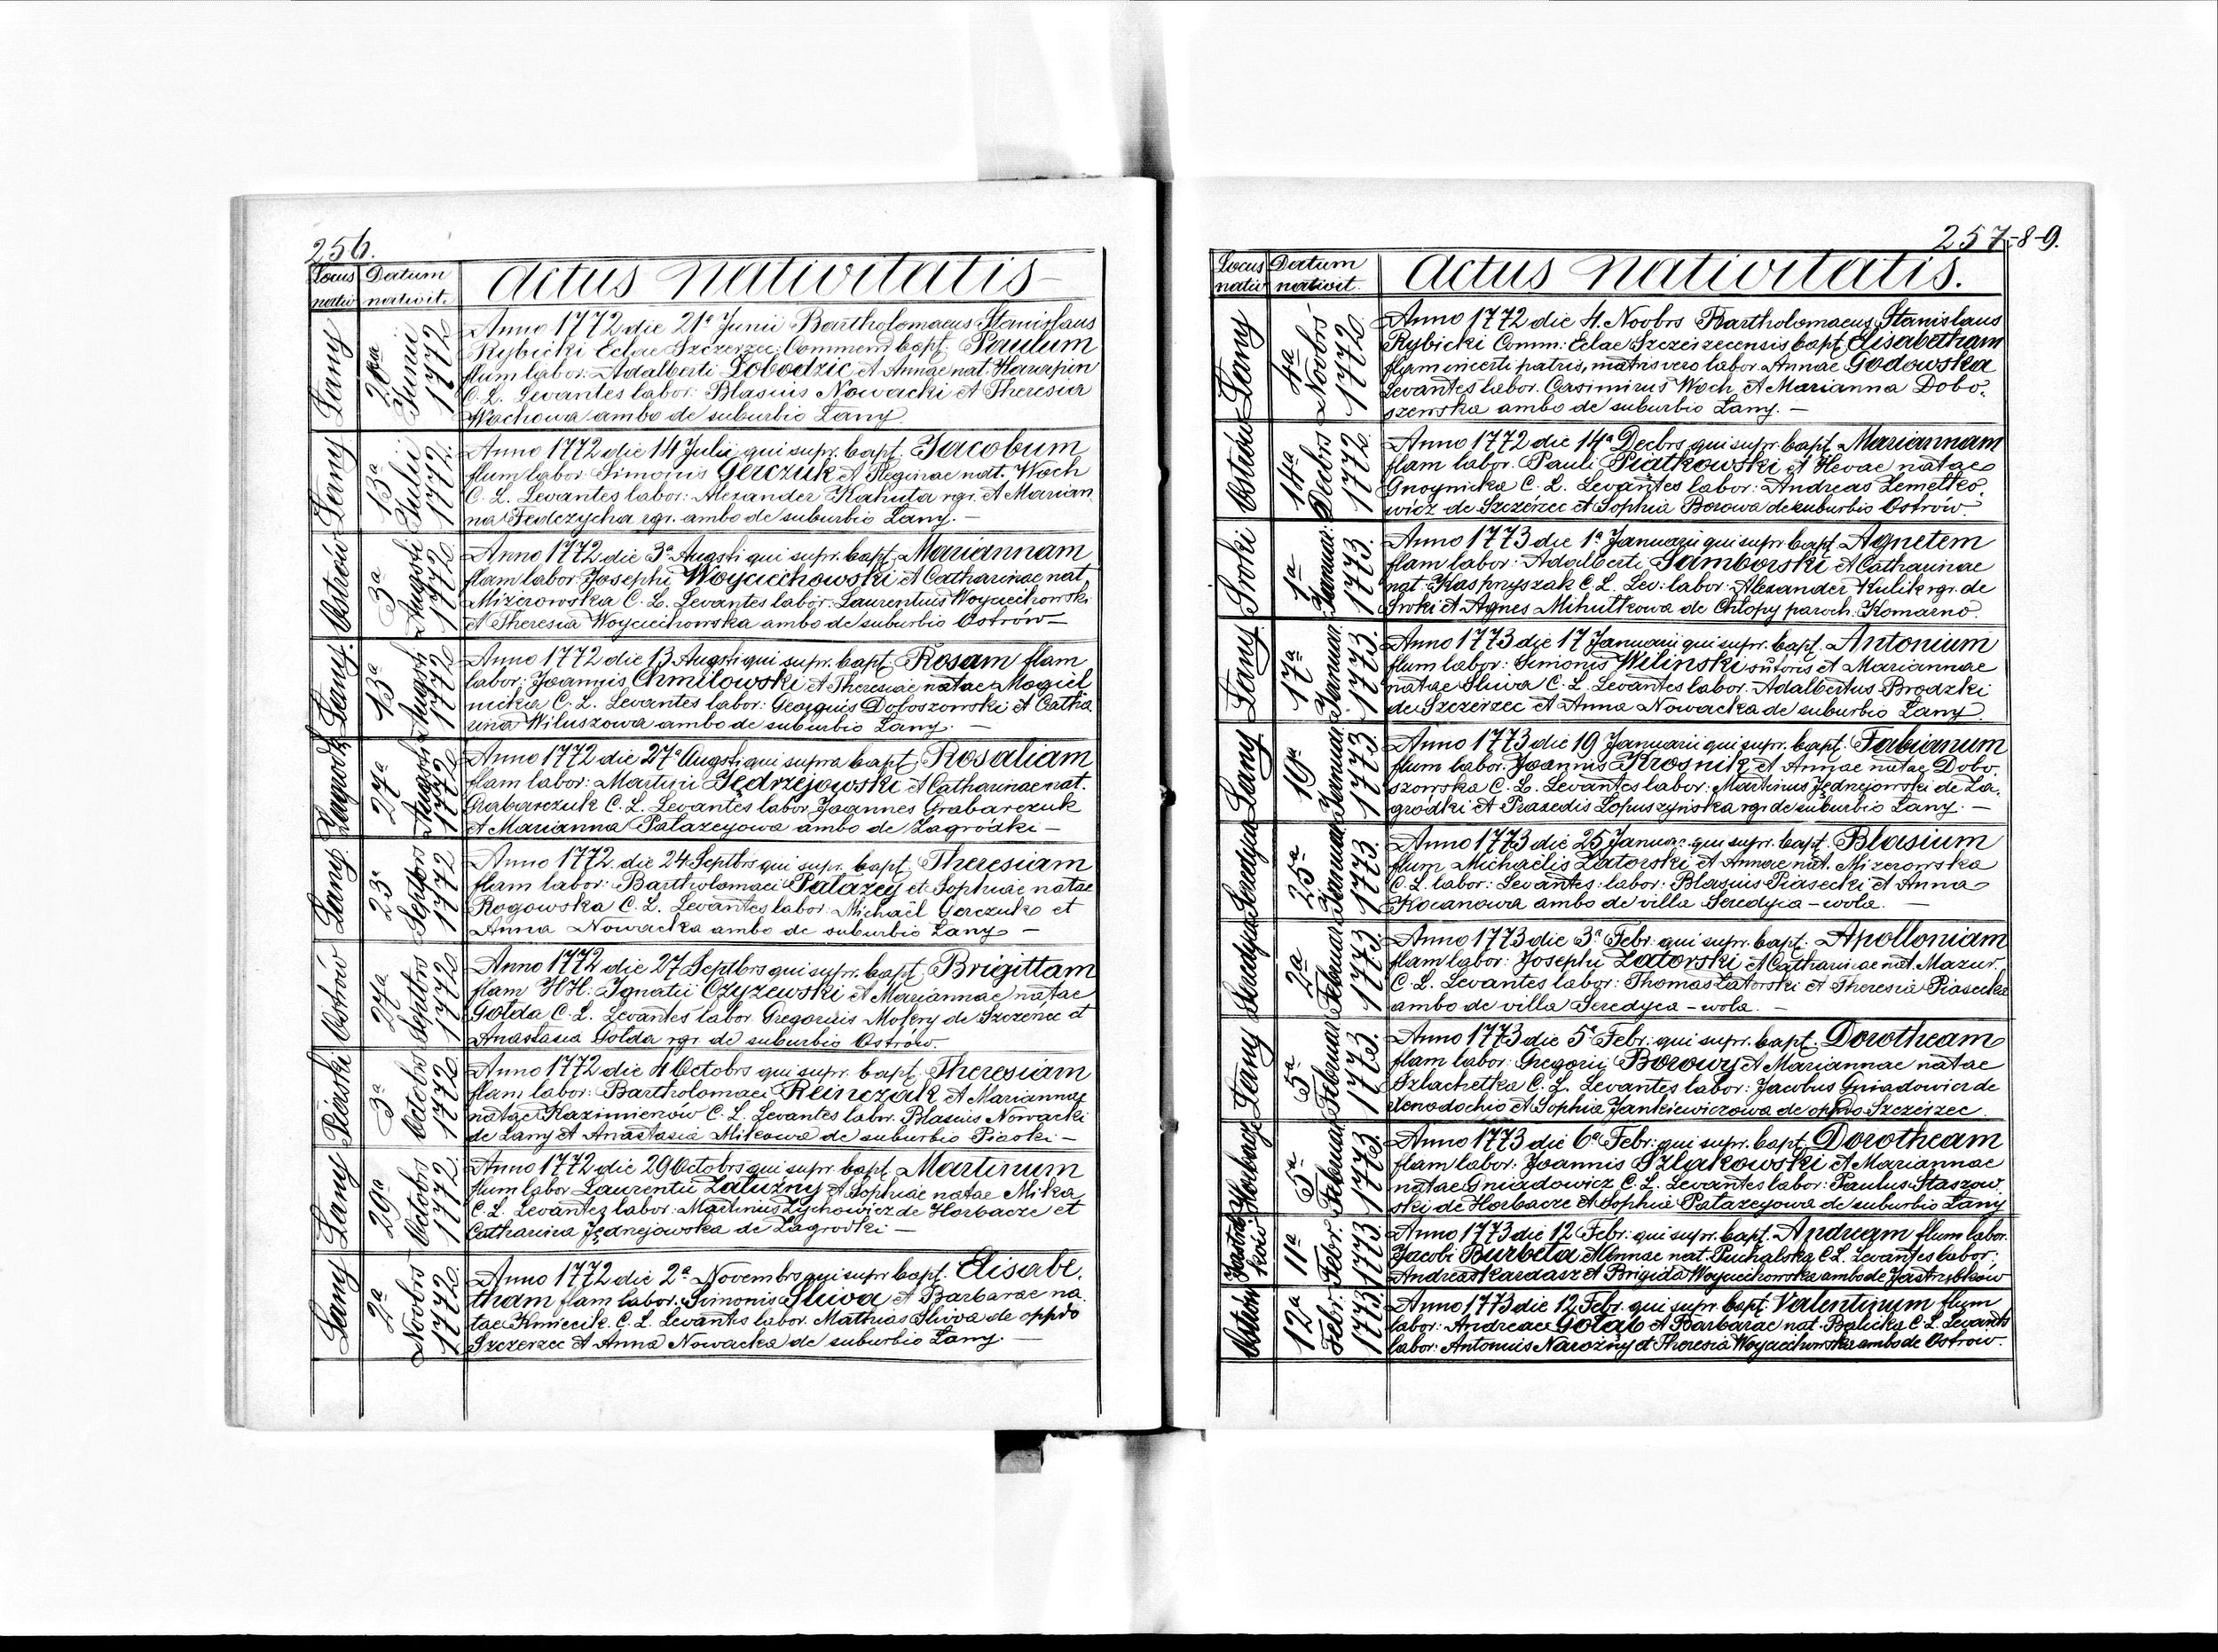 256.
Locus nativ
Datum nativit.
Actus nativitatis
Łany
20ma Junii 1772
Anno 1772 die 21a Junii Bartholomaeus Stanislaus
Rybicki Eclae Szczerzec: Commend bapt. Paulum
flum labor: Adalberti Łobodzic et Annae nat. Karwipin
C. L. Levantes labor: Blasius Nowacki et Theresia
Wochowa ambo de suburbio Łany.
Łany
13a Julii 1772.
Anno 1772 die 14 Julii qui supr. bapt. Jacobum
flum labor Simonis Gerczuk et Reginae nat. Woch
C. L. Levantes labor: Alexander Kahuta rgr. et Marian
na Fedczycha rgr. ambo de suburbio Łany. –
Ostrów
3a Augsti 1772
Anno 1772 die 3a Augsti qui supr. bapt. Mariannam
flam labor Josephi Woyciechowski et Catharinae nat.
Mizerowska C. L. Levantes labor: Laurentius Woyciechowski
et Theresia Woyciechowska ambo de suburbio Ostrów –
Łany.
13a Augsti 1772
Anno 1772 die 13 Augsti qui supr. bapt. Rosam flam
labor: Joannis Chmilowski et Theresiae natae Mogiel
nicka C. L. Levantes labor: Georgius Doboszowski et Catha
rina Wiluszowa ambo de suburbio Łany. –
Zagrodk
27a Augsti 1772
Anno 1772 die 27a Augsti qui supra bapt. Rosaliam
flam labor: Martini Jędrzejowski et Catharinae nat.
Grabarczuk C. L. Levantes labor Joannes Grabarczuk
et Marianna Pałazeyowa ambo de Zagródki –
Łany.
23a Septbrs 1772
Anno 1772. die 24 Septbrs qui supr. bapt. Theresiam
flam labor: Bartholomaei Pałazey et Sophiae natae
Rogowska C. L. Levantes labor: Michaël Gerczuk et
Anna Nowacka ambo de suburbio Łany –
Ostrów
27a Septbrs 1772
Anno 1772 die 27 Septbrs qui supr. bapt. Brigittam
flam HH: Ignatii Czyzewski et Mariannae natae
Gołda C. L. Levantes labor. Gregorius Mosery de Szczerzec et
Anastasia Gołda rgr. de suburbio Ostrów.
Piaski
3a Octobrs 1772.
Anno 1772 die 4 Octobrs qui supr. bapt. Theresiam
flam labor: Bartholomaei Reinczak et Mariannae
natae Kazimierow C. L. Levantes labor. Blasius Nowacki
de Łany et Anastasia Mikowa de suburbio Piaski –
Łany
29a Octobrs 1772.
Anno 1772 die 29 Octobrs qui supr. bapt. Martinum
flum labor Laurentii Załuzny et Sophiae natae Mika
C. L. Levantes labor: Martinus Zychowicz de Horbacze et
Catharina Jędrzejowska de Zagrodki –
Łany
2a Novbrs 1772.
Anno 1772 die 2a Novembrs qui supr bapt. Elisabe.
tham flam labor. Simonis Sliwa et Barbarae na.
tae Kmiecik. C. L. Levantes labor. Mathias Sliwa de oppdo
Szczerzec et Anna Nowacka de suburbio Łany. –
257-8-9.
Locus nativ
Datum nativit.
Actus nativitatis.
Łany
4a Novbrs 1772.
Anno 1772 die 4. Novbrs Bartholomaeus Stanislaus
Rybicki Comm: Eclae Szczerzecensis bapt. Elisabetham
flam incerti patris, matris vero labor. Annae Godowska
Levantes labor. Casimirus Woch et Marianna Dobo.
szewska ambo de suburbio Łany. –
Ostrów
14a Decbrs 1772.
Anno 1772 die 14a Decbrs qui supr. bapt. Mariannam
flam labor. Pauli Piatkowski et Hevae natae
Gnoynicka C. L. Levantes labor: Andreas Lemetko.
wicz de Szczerzec et Sophia Borowa de suburbio Ostrów.
Sroki
1a Januar: 1773.
Anno 1773 die 1a Januarii qui supr. bapt. Agnetem
flam labor: Adalberti Samborski et Catharinae
nat. Kasprzyszak C. L. Lev: labor: Alexander Kulik rgr. de
Sroki et Agnes Mihulkowa de Chłopy paroch: Komarno.
Łany
17a Januar. 1773.
Anno 1773 die 17 Januarii qui supr. bapt. Antonium
flum labor: Simonis Wilinski sutoris et Mariannae
natae Sliwa C. L. Levantes labor. Adalbertus Brodzki
de Szczerzec et Anna Nowacka de suburbio Łany.
Łany
19a Januar. 1773.
Anno 1773 die 19 Januarii qui supr. bapt. Fabianum
flum labor. Joannis Krosnik et Annae natae Dobo.
szowska C. L. Levantes labor: Martinus Jędrzejowski de Za.
gródki et Praxedis Łopuszyńska rgr. de suburbio Łany. –
Seredyca
25a Januar 1773.
Anno 1773 die 25 Januar. qui supr. bapt. Blasium
flum Michaelis Zatorski et Annae nat. Mizerowska
C. L. labor: Levantes: labor: Blasius Piasecki et Anna
Kocanowa ambo de villa Seredyca – wola. –
Seredyca
2a Februar 1773.
Anno 1773 die 3a Febr: qui supr. bapt. Apolloniam
flam labor: Josephi Zatorski et Catharinae nat. Mazur.
C. L. Levantes labor: Thomas Zatorski et Theresia Piasecka
ambo de villa Seredyca – wola. –
Łany
5a Februar 1773.
Anno 1773 die 5a Febr: qui supr. bapt. Dorotheam
flam labor: Gregorii Borowy et Mariannae natae
Szlachetka C. L. Levantes labor: Jacobus Gniadowicz de
Xenodochio et Sophia Jankiewiczowa de oppdo Szczerzec.
Horbacz
5a Februar 1773.
Anno 1773 die 6a Febr: qui supr. bapt. Dorotheam
flam labor: Joannis Szlakowski et Mariannae
natae Gniadowicz C. L. Levantes labor: Paulus Staszow.
ski de Horbacze et Sophia Pałazeyowa de suburbio Łany
Jastrzęb
ków
11a Febr. 1773
Anno 1773 die 12 Febr: qui supr. bapt. Andream flum labor.
Jacobi Burbela et Annae nat. Puchalska C. L. Levantes labor:
Andreas Kardasz et Brigida Woyciechowska ambo de Jastrzębków
Ostrów
12a Febr. 1773
Anno 1773 die 12 Febr. qui supr. bapt. Valentinum flum
labor: Andreae Gołąb et Barbarae nat. Balicka C. L. Levants
labor: Antonius Narożny et Theresia Woyciechowska ambo de Ostrow.